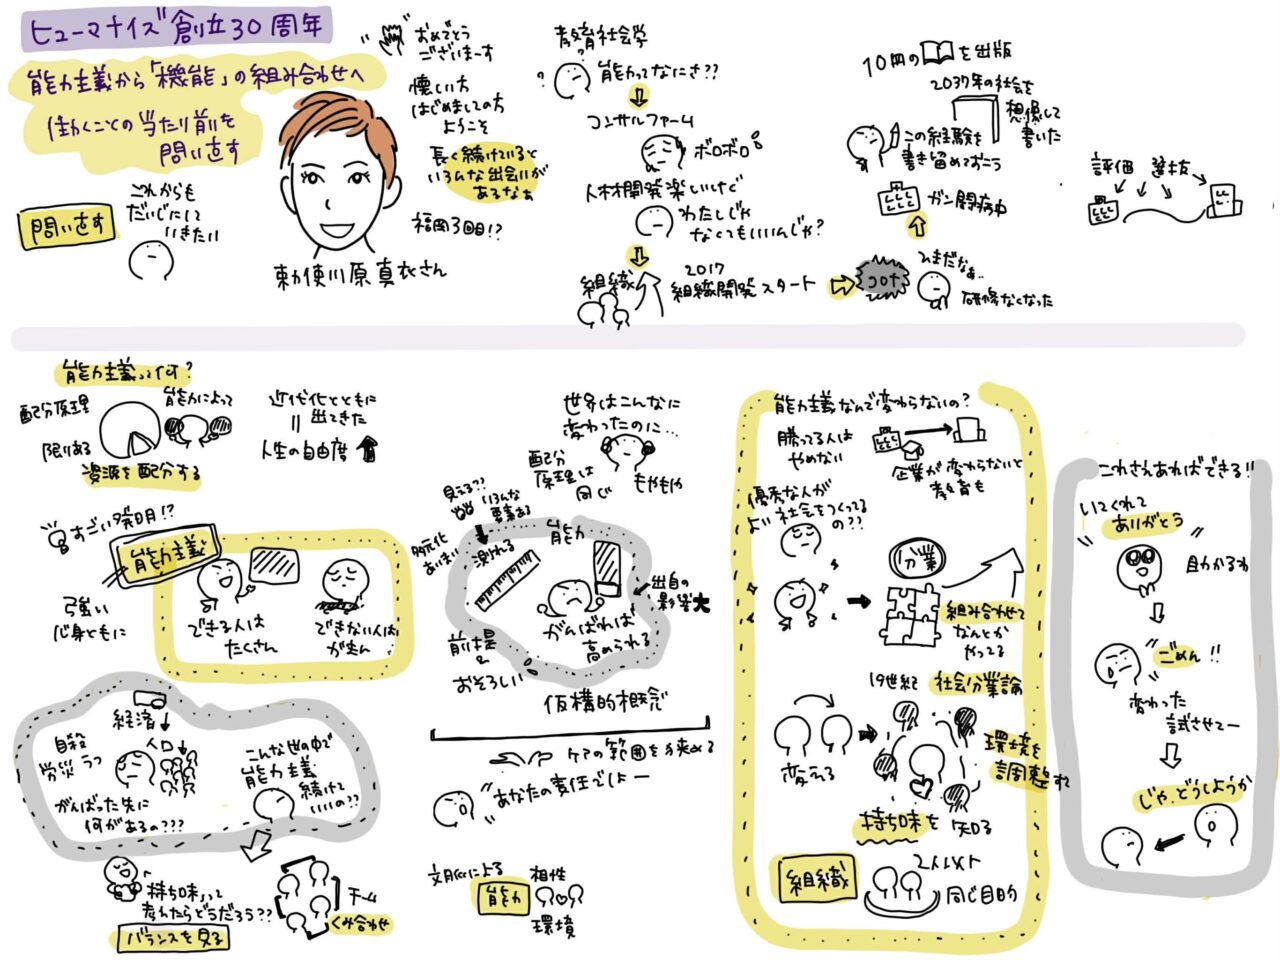 ヒューマナイズ創立30周年
能力主義から「機能」の組み合わせへ
働くことの当たり前を
問い直す
問い直す
これからも
だいじにして
いきたい
勅使川原真衣さん
おめでとう
ございまーす
懐しい方
はじめましての方
ようこそ
長く続けていると
いろんな出会いが
あるなぁ
福岡3回目!?
教育社会学
能力ってなにさ??
コンサルファーム
ボロボロ
人材開発楽しいけど
わたしじゃ
なくてもいいんじゃ?
組織
2017
組織開発スタート
コロナ
ひまだなぁ…
研修なくなった
ガン闘病中
この経験を
書き留めておこう
10冊の
を出版
2037年の社会を
想像して
書いた
評価 選抜
能力主義って何?
配分原理
能力によって
限りある
資源を配分する
近代化とともに
出てきた
人生の自由度
すごい発明!?
能力主義
強い
心身ともに
できる人は
たくさん
できない人は
少しだけ
経済
自殺
労災
うつ
人口
がんばった先に
何があるの???
こんな世の中で
能力主義
続けて
いいの??
持ち味って
考えたらどうだろう??
バランスを見る
チーム
くみ合わせ
世界はこんなに
変わったのに…
配分
原理は
同じ
もやもや
見える??
いろんな
要素ある
多元化
あいまい
測れる
能力
出自の
影響大
がんばれば
高められる
前提
おそろしい
仮構的概念
ケアの範囲を狭める
あなたの責任でしょー
文脈による
能力
相性
環境
能力主義なんで変わらないの?
勝ってる人は
やめない
企業が変わらないと
教育も
優秀な人が
よい社会をつくってる
の??
分業
組み合わせて
なんとか
やってる
19世紀 社会分業論
変える
環境を
調整する
持ち味を知る
組織
2人以上
同じ目的
これさえあればできる!!
いてくれて
ありがとう
自分から
ごめん!!
変わった
試させてー
じゃ、どうしようか